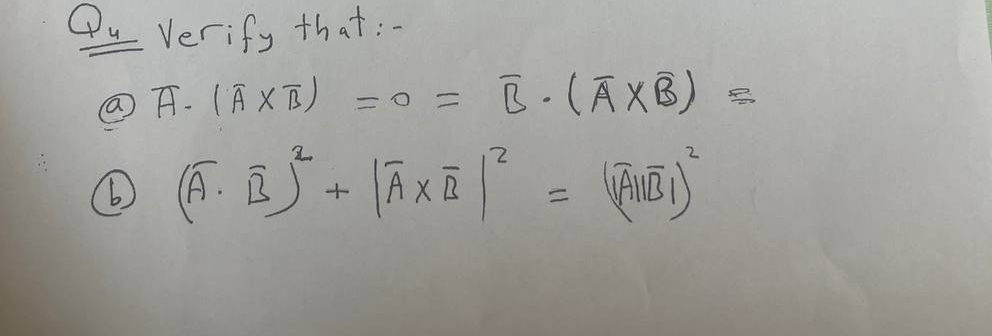 Q4 Verify that:-
ⓐ A̅. (A̅ X B̅) = 0 = B̅ . (A̅ X B̅) =
ⓑ (A̅. B̅)² + |A̅ x B̅|² = (|A̅||B̅|)²